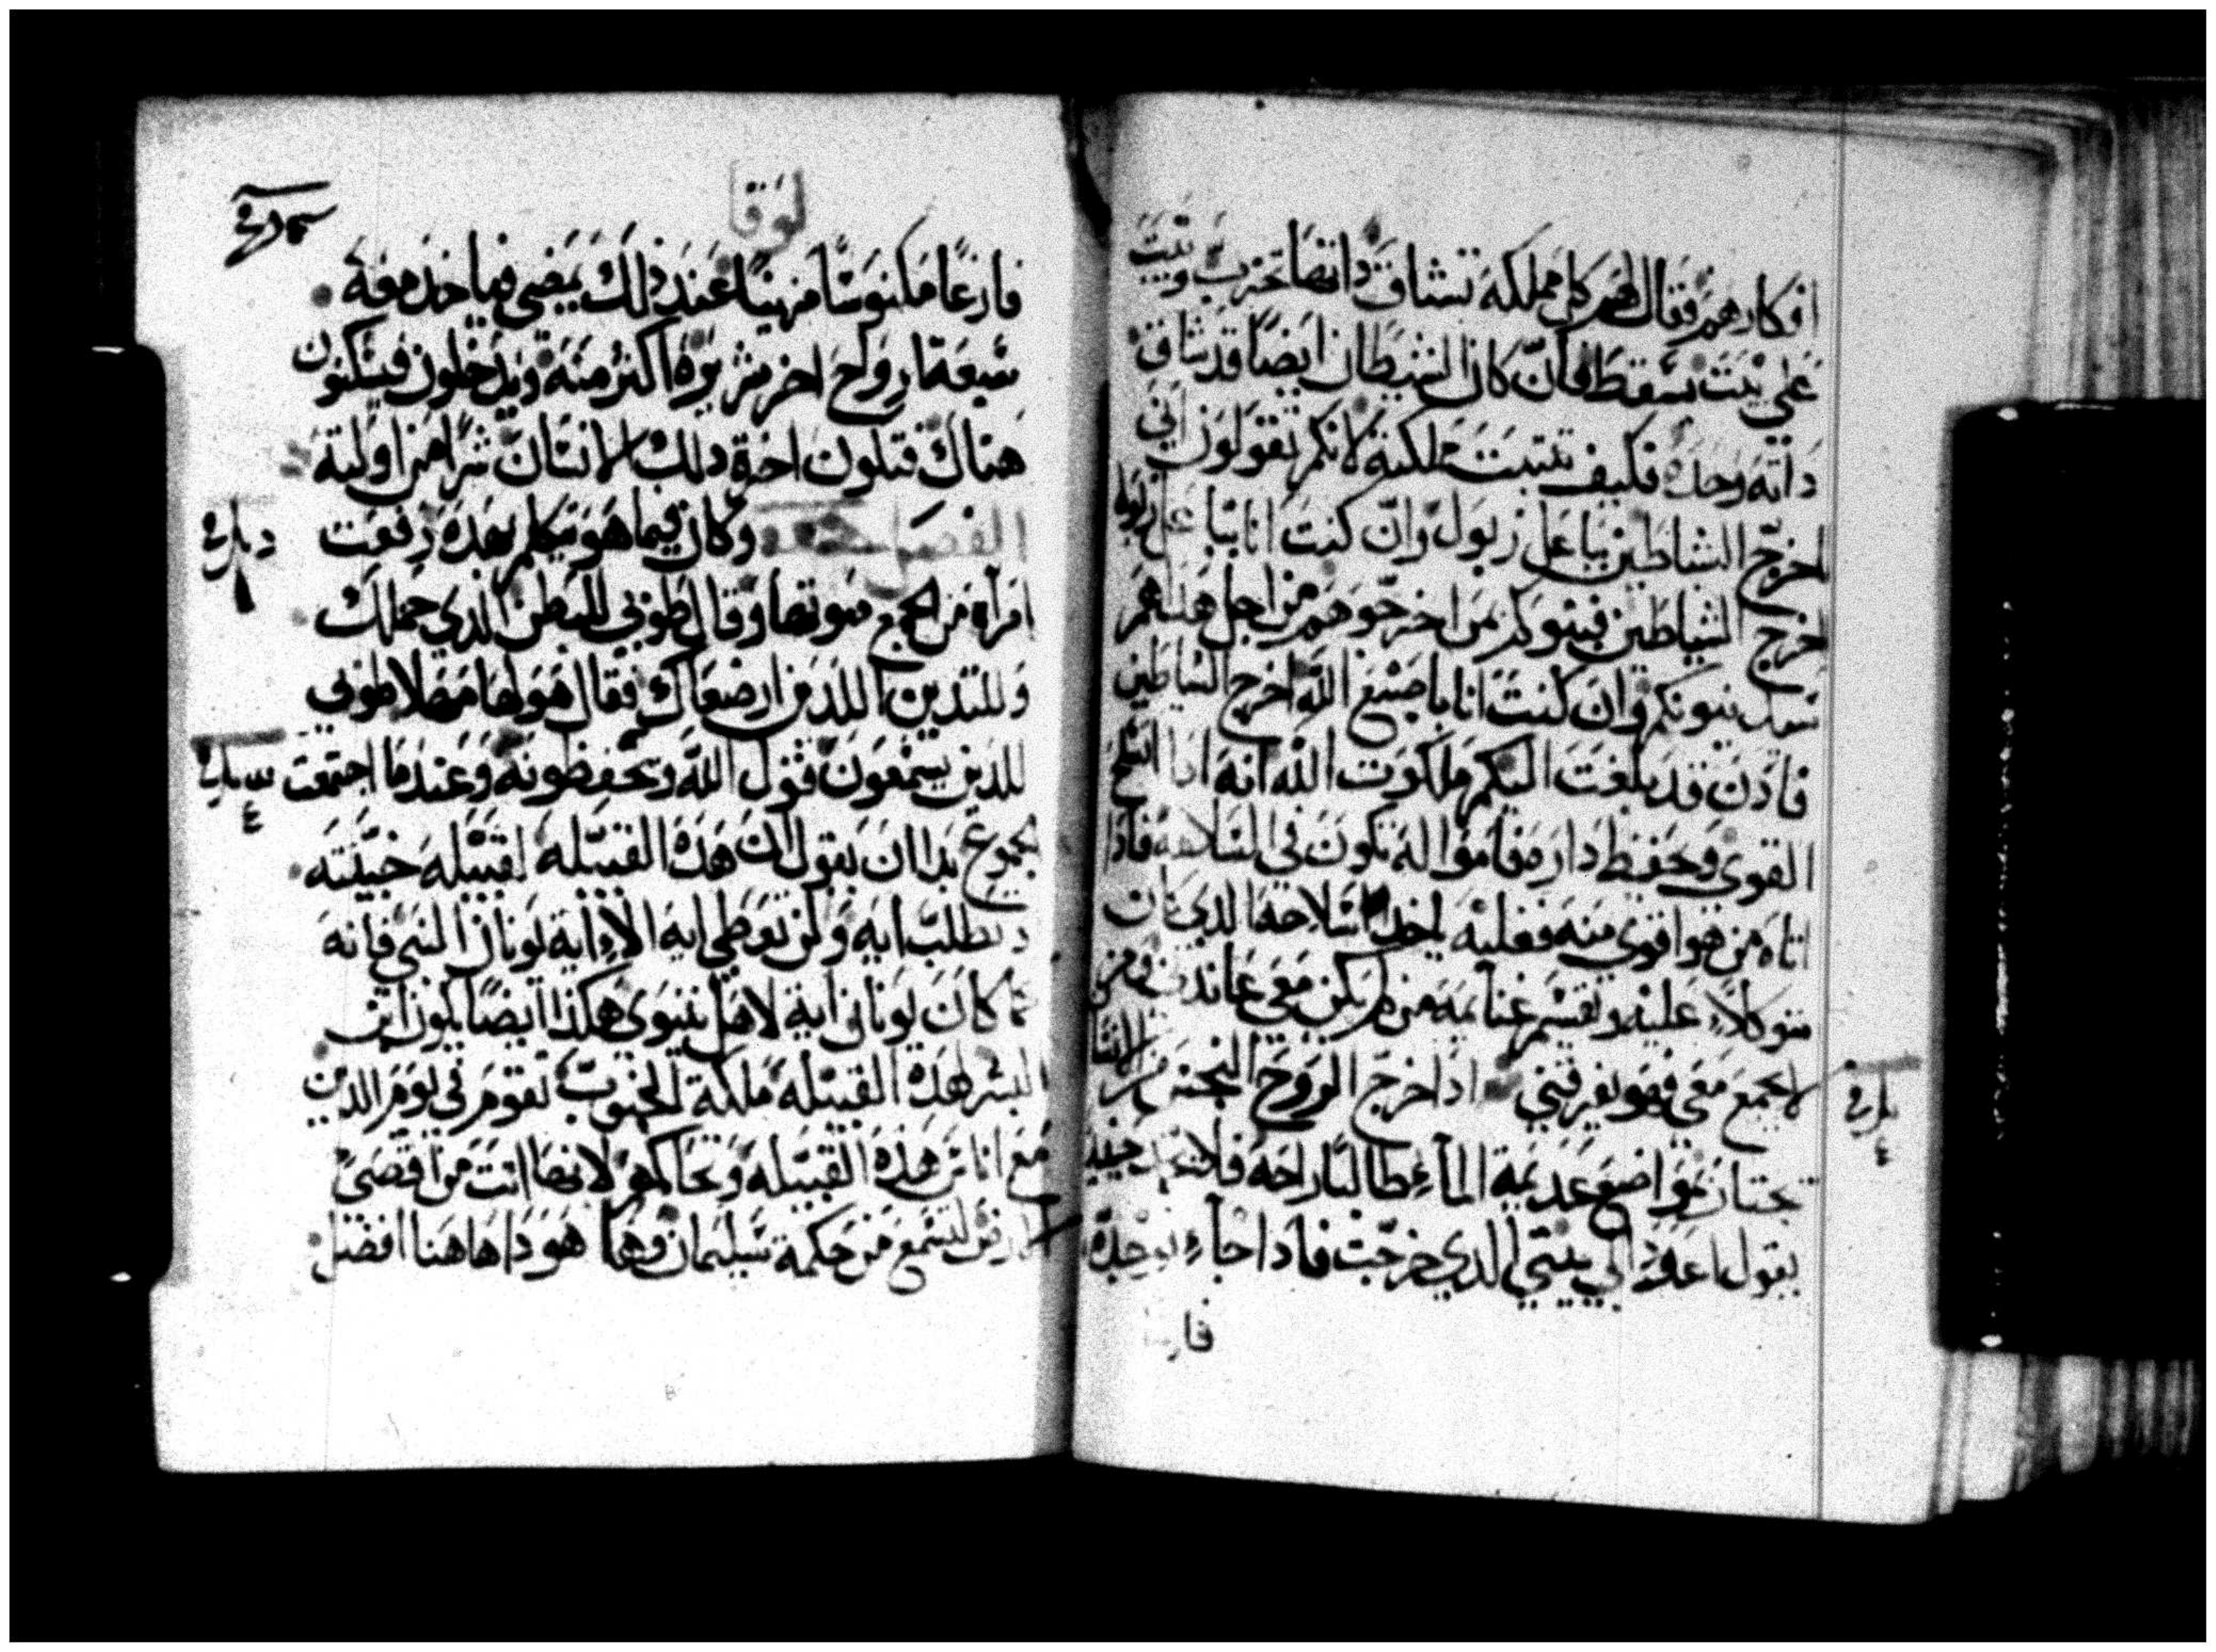 افكارهم فقال لهم كل مملكه تنشاق داتها تخرب وبيت
على بيت يسقط فان كان الشيطان ايضا قد نشاق
داته وحده فكيف تتبت مملكته لانكم تقولون اني
اخرج الشياطين بباعل زبول وان كنت انا بباعل زبول
اخرج الشياطين فبنوكم بمن اخرجوهم من اجل هدا هم
يدينونكم وان كنت انا باصبع الله اخرج الشياطين
فادن قد بلغت اليكم ملكوت الله انه ادا اتسلح
القوي وحفظ داره فامواله تكون في السلامه فادا
اتاه من هو اقوى منه وغلبه ياخد سلاحه الدي كان
متوكلاً عليه ويقسم غنايمه من لم يكن معي عاندني ومن
لا يجمع معي فهو يفرقني ادا خرج الروح النجس من الانسان
تجتاز بمواضع عديمة الماء طالبا راحه فلا تجد حينيد
يقول اعود الي بيتي الدي خرجت فادا جاء يوجده
فار
لوقا
فارغا مكنوسا مزينا عند دلك يمضي فياخد معه
سبعة ارواح اخر شريره اكتر منه ويدخلون فيسكنون
هناك فتكون اخرة دلك الانسان شرا من اوليته
الفصل وكان فيما هو يتكلم بهده رفعت
امراه من الجمع صوتها وقالت طوبي للبطن الدي حملك
وللتديين اللدين ارضعاك فقال هو لها مهلا طوبي
للدين يسمعون قول الله ويحفظونه وعندما اجتمعت
الجموع بدا ان يقول ان هده القبيله لقبيله خبيته
وتطلب ايه ولن تعطي ايه الا اية يونان النبي فانه
كما كان يونان اية لاهل نينوى هكدا ايضا يكون ابن
البشر لهده القبيله ملكة الجنوب تقوم في يوم الدين
مع اناس هده القبيله وتحاكمهم لانها اتت من اقصى
الارض لتسمع من حكمة سليمان وها هودا هاهنا افضل